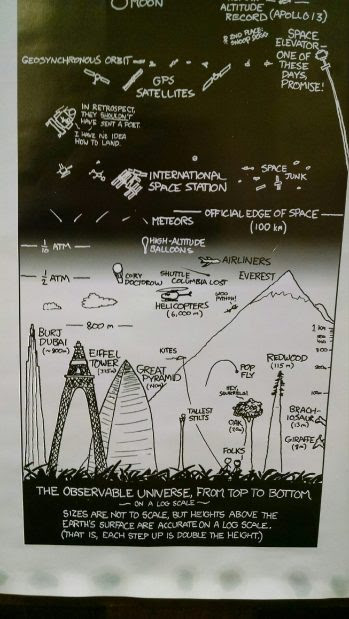 MOON
ALTITUDE
RECORD (APOLLO 13)
2ND PLACE:
SNOOP DOGG
SPACE
ELEVATOR—
ONE OF
THESE
DAYS,
PROMISE!
GEOSYNCHRONOUS ORBIT
GPS
SATELLITES
IN RETROSPECT,
THEY SHOULDN'T
HAVE SENT A POET.
I HAVE NO IDEA
HOW TO LAND.
INTERNATIONAL
SPACE STATION
SPACE
JUNK
OFFICIAL EDGE OF SPACE
(100 km)
METEORS
1/10 ATM
HIGH-ALTITUDE
BALLOONS
AIRLINERS
1/2 ATM
CORY
DOCTOROW
SHUTTLE
COLUMBIA LOST
EVEREST
HELICOPTERS
(6,000 m)
800 m
1 km
BURJ
DUBAI
(~800m)
EIFFEL
TOWER
(325m)
GREAT
PYRAMID
KITES
POP
FLY
REDWOOD
(115 m)
100m
TALLEST
STILTS
HEY,
SQUIRRELS!
OAK
(20m)
BRACH-
IOSAUR
(13m)
FOLKS
GIRAFFE
THE OBSERVABLE UNIVERSE, FROM TOP TO BOTTOM
— ON A LOG SCALE —
SIZES ARE NOT TO SCALE, BUT HEIGHTS ABOVE THE
EARTH'S SURFACE ARE ACCURATE ON A LOG SCALE.
(THAT IS, EACH STEP UP IS DOUBLE THE HEIGHT.)